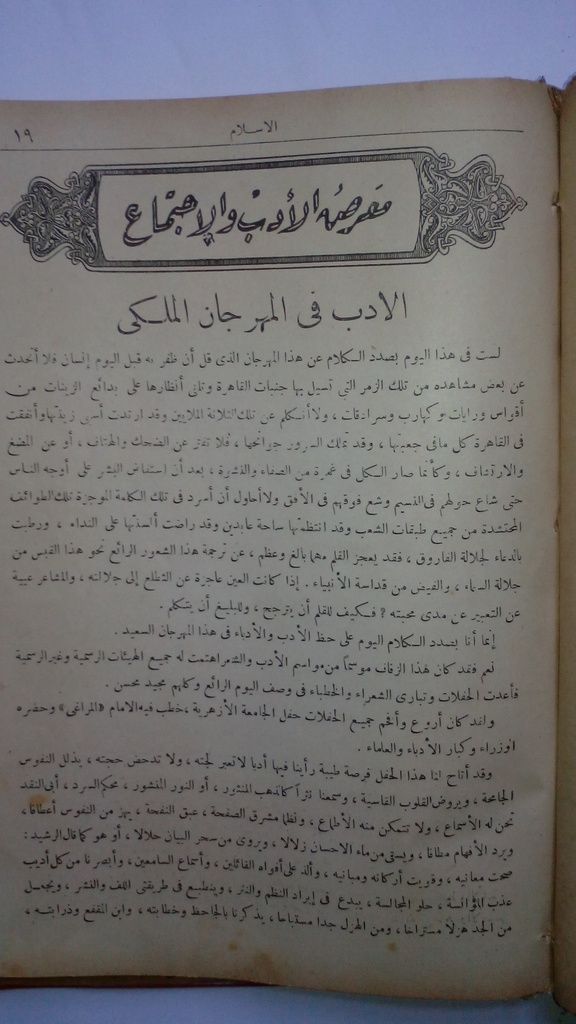 ١٩
الاسلام
معرض الأدب والاجتماع
الادب فى المهرجان الملكى
لست فى هذا اليوم بصدد الكلام عن هذا المهرجان الذى قل أن ظفر به قبل اليوم إنسان فلا أتحدث
عن بعض مشاهده من تلك الزمر التي تسيل بها جنبات القاهرة وتلقى أنظارها على بدائع الزينات من
أقواس ورايات وكهارب وسرادقات ، ولا أتكلم عن تلك الثلاثة الملايين وقد ارتدت أسمى زينتها وأنفقت
فى القاهرة كل مافى جعبتها ، وقد تملك السرور جوانحها ، فلا تفتر عن الضحك والهتاف ، أو عن المضغ
والارتشاف ، وكأنما صار الكل فى غمرة من الصفاء والنشوة ، بعد أن استفاض البشر على أوجه الناس
حتى شاع حولهم فى النسيم وشع فوقهم فى الأفق ولا أحاول أن أسرد فى تلك الكلمة الموجزة تلك الطوائف
المحتشدة من جميع طبقات الشعب وقد انتظمتها ساحة عابدين وقد راضت ألسنتها على النداء ، ورطبت
بالدعاء لجلالة الفاروق ، فقد يعجز القلم مهما بالغ وعظم ، عن ترجمة هذا الشعور الرائع نحو هذا القبس من
جلالة السماء ، والفيض من قداسة الأنبياء . إذا كانت العين عاجزة عن التطلع إلى جلالته ، والمشاعر عيية
عن التعبير عن مدى محبته ? فكيف للقلم أن يترجم ، وللبليغ أن يتكلم .
إنما أنا بصدد الكلام اليوم على حظ الأدب والأدباء فى هذا المهرجان السعيد .
نعم فقد كان لهذا الزفاف موسما من مواسم الأدب والشعر اهتمت له جميع الهيئات الرسمية وغير الرسمية
فأعدت الحفلات وتبارى الشعراء والخطباء فى وصف اليوم الرائع وكلهم مجيد محسن .
ولقد كان أروع وأفخم جميع الحفلات حفل الجامعة الأزهرية ، خطب فيه الامام «المراغى» وحضره
الوزراء وكبار الأدباء والعلماء .
وقد أتاح لنا هذا الحفل فرصة طيبة رأينا فيها أدبا لا تعبر لجته ، ولا تدحض حجته ، يذلل النفوس
الجامحة ، ويروض القلوب القاسية ، وسمعنا نثراً كالذهب المنثور ، أو النور المنشور ، محكم السرد ، أبى النقد
تحن له الأسماع ، ولا تتمكن منه الأطماع ، ونظما مشرق الصفحة ، عبق النفحة ، يهز من النفوس أعطافا ،
ويرد الأفهام مطافا ، ويسقى من ماء الاحسان زلالا ، ويروى من سحر البيان حلالا ، أو هو كما قال الرشيد :
صحت معانيه ، وقويت أركانه ومبانيه ، وألذ على أفواه القائلين ، وأسماع السامعين ، وأبصرنا من كل أديب
عذب المؤانسة ، حلو المجالسة ، يبدع فى إيراد النظم والنثر ، وينطبع فى طريقتى اللف والنشر ، ويجعل
من الجد هزلا مستراحا ، ومن الهزل جدا مستباحا ، يذكرنا بالجاحظ وخطابته ، وابن المقفع وذرابته ،